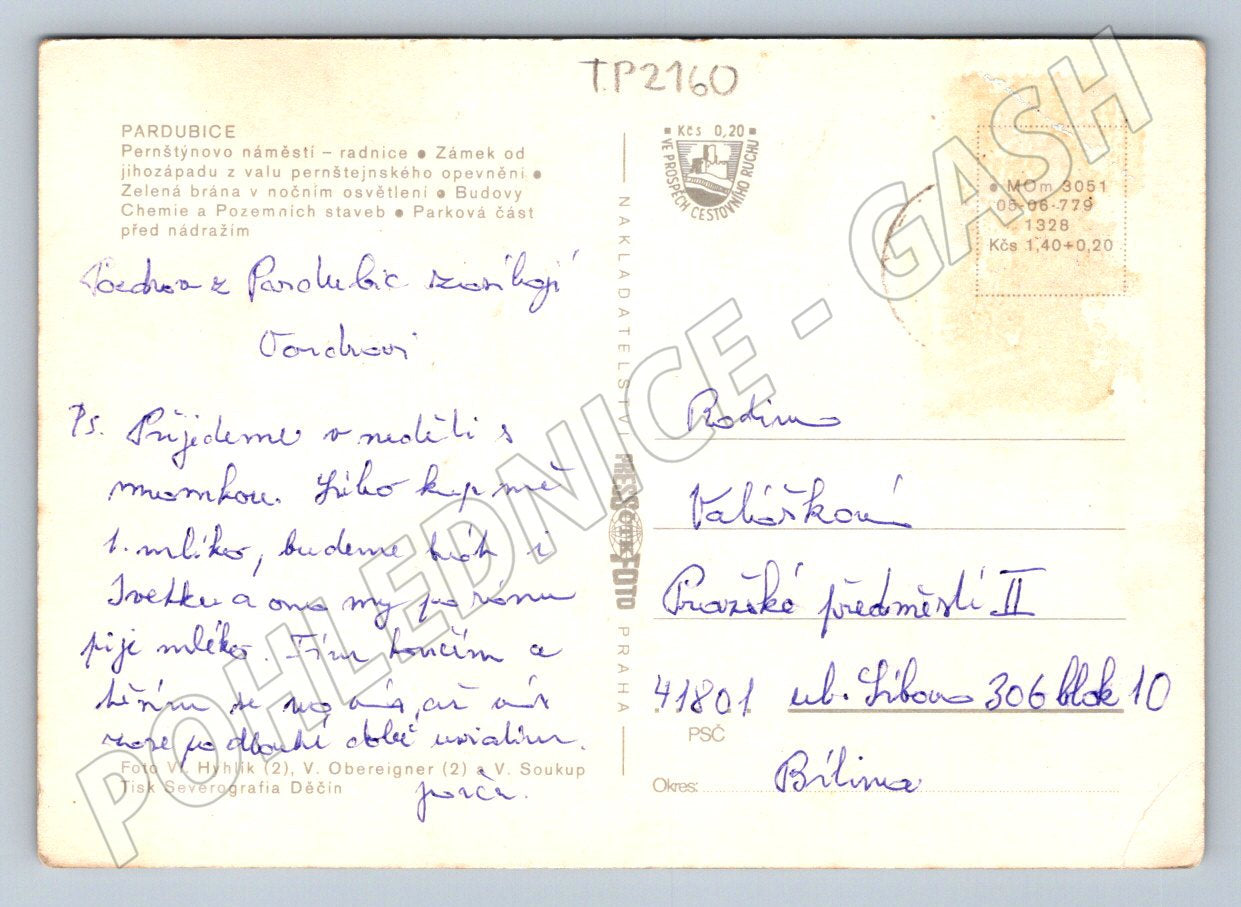 TP2160
PARDUBICE
Pernštýnovo náměstí – radnice ● Zámek od
jihozápadu z valu pernštejnského opevnění ●
Zelená brána v nočním osvětlení ● Budovy
Chemie a Pozemních staveb ● Parková část
před nádražím
Pozdrav z Pardubic zasílají
Vondrovi
Ps. Přijedeme v neděli s
mamkou. kup mě
1. mléko, budeme i
Ivetku a ona my po ránu
pije mléko. Tím končím a
těším se na vás, až vás
zase po dlouhé době uvidím.
Foto V. Hyhlík (2), V. Obereigner (2) a V. Soukup
Tisk Severografia Děčín
Kčs 0,20
VE PROSPĚCH CESTOVNÍHO RUCHU
NAKLADATELSTVÍ PRESSFOTO PRAHA
ČTK
● MOm 3051
05-06-779
1328
Kčs 1,40+0,20
Rodina
Valášková
Pražské předměstí II
41801 ul. 306 blok 10
PSČ
Okres: Bílina
POHLEDNICE - GASH